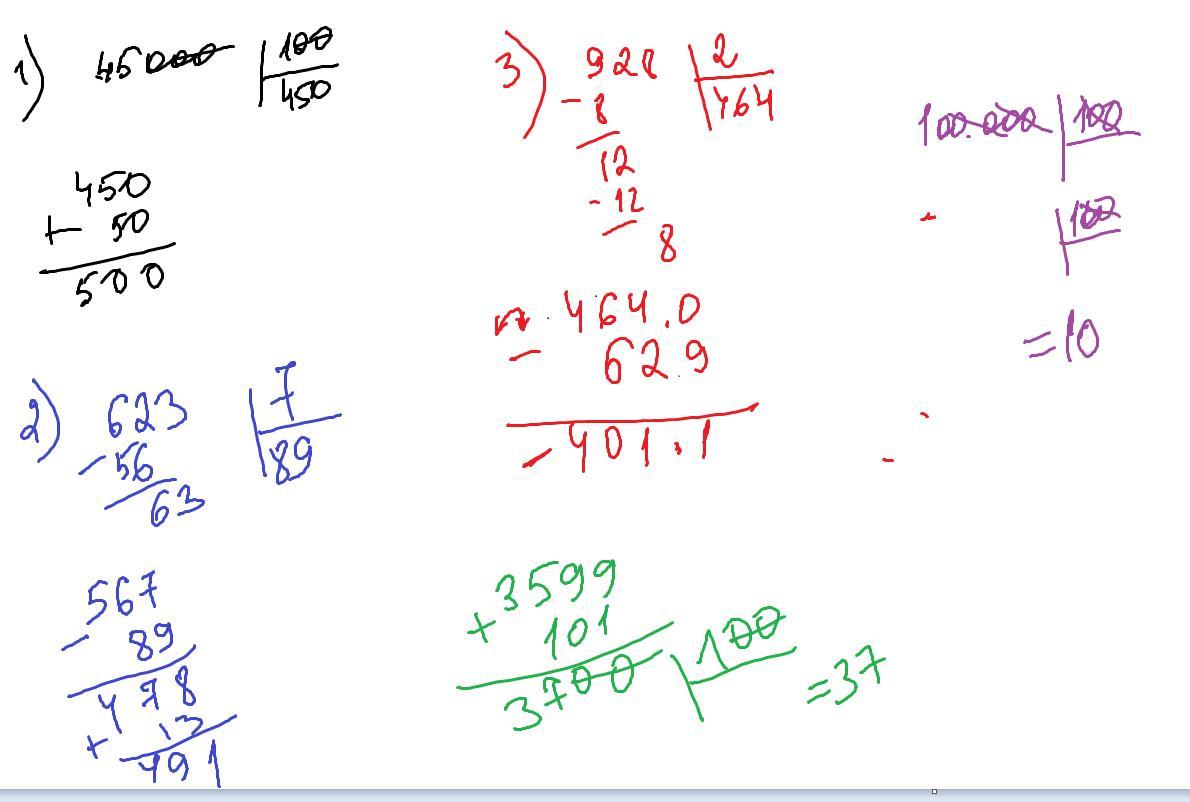 1) 45000 100
450
450
+ 50
500
2) 623 7
-56 89
63
567
- 89
478
+ 13
491
3) 928 2
- 8 464
12
- 12
8
464.0
- 62.9
- 401.1
+3599
101
3700 100 = 37
100.000 100
100
= 10